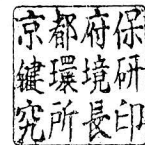 京都府保
健環境研
究所長印